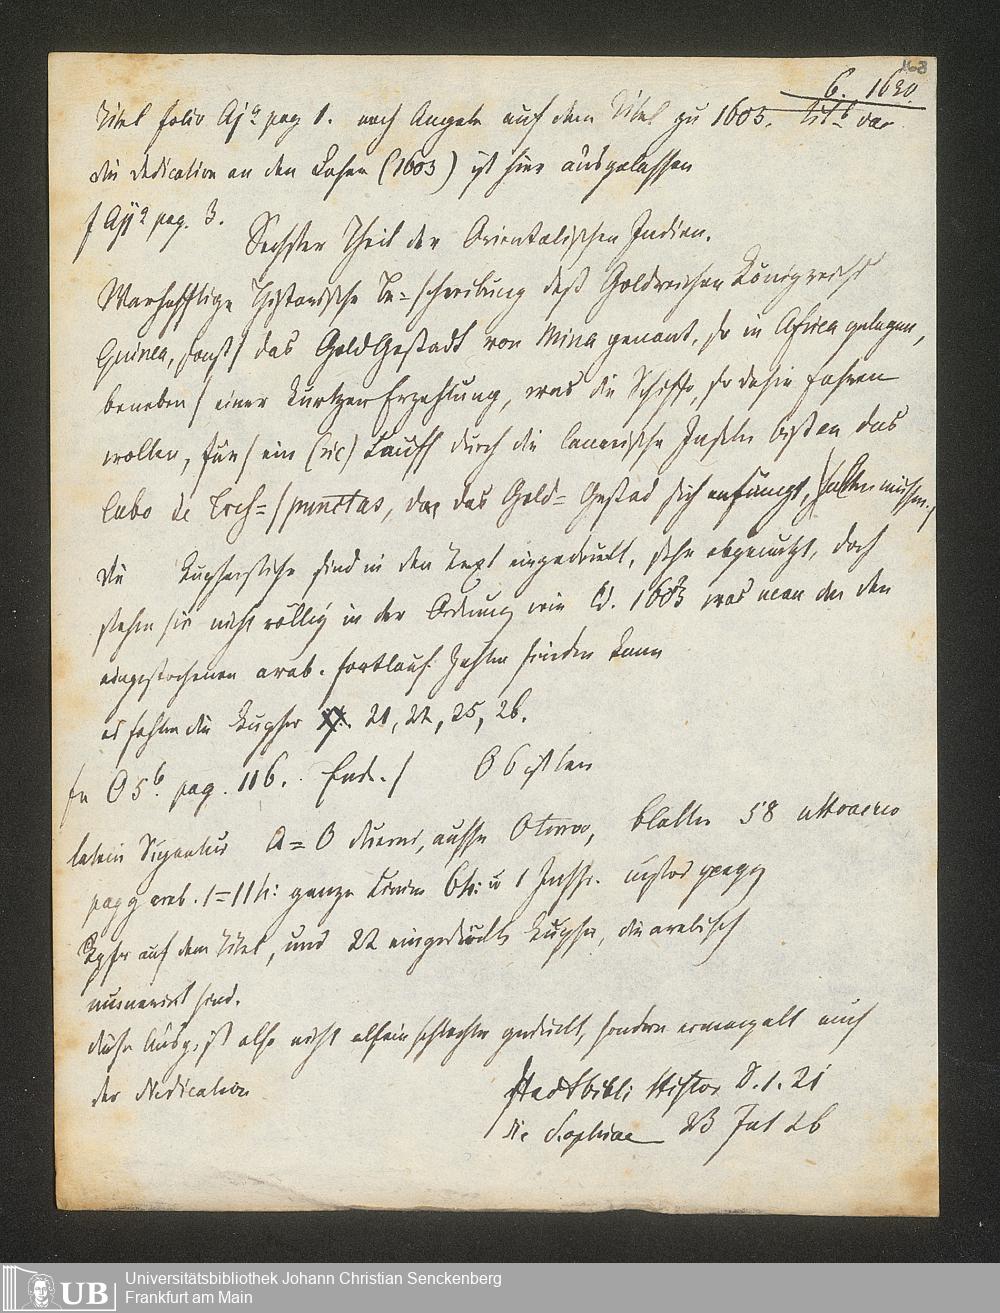 168
6. 1630
Titel folio Aja pag 1. nach Angabe auf dem Titel zu 1603. Titb vac
die Dedication an den Leser (1603) ist hier ausgelassen
f Aij a pag. 3.
Sechster Theil der Orientalischen Indien.
Warhafftige Historische Be=/schreibung deß Goldreichen Königreichs
Guinea, sonst/ das GoldGestadt von Mina genant, so in Africa gelegen,
beneben/ einer kurtzen Erzehlung, was die Schiffe, so dahin fahren
wollen, fur/ ein (sic) Lauff durch die Canarische Inseln biß an das
Cabo de Trch=/punctas, da das Gold=Gestad sich anfängt, / halten müssen./
die Kupferstiche sind in den Text eingedruckt, sehr abgenutzt, doch
stehen sie nicht völlig in der Ordnung wie Ed. 1603 was man an den
eingestochenen arab. fortlauf. Zahlen finden kann
es fehlen die Kupfer 21, 22, 25, 26.
fu O5b. pag. 116. Ende./ O6 ist leer
latein Signatur A=O duerni, ausser O terno, Blätter 58 attoacrio
pagg arab. 1=11 ganze Linien u 1 Inschr. custos
Kpfr auf dem Titel, und 22 eingedruckte Kupfer, die arabisch
numerirt sind.
diese Ausg. ist also nicht allein schlechter gedruckt, sondern ermangelt auch
der Dedication
Stadtbibli Histor D. 1. 21
die Sophiae 23 Jul 26
UB
Universitätsbibliothek Johann Christian Senckenberg
Frankfurt am Main